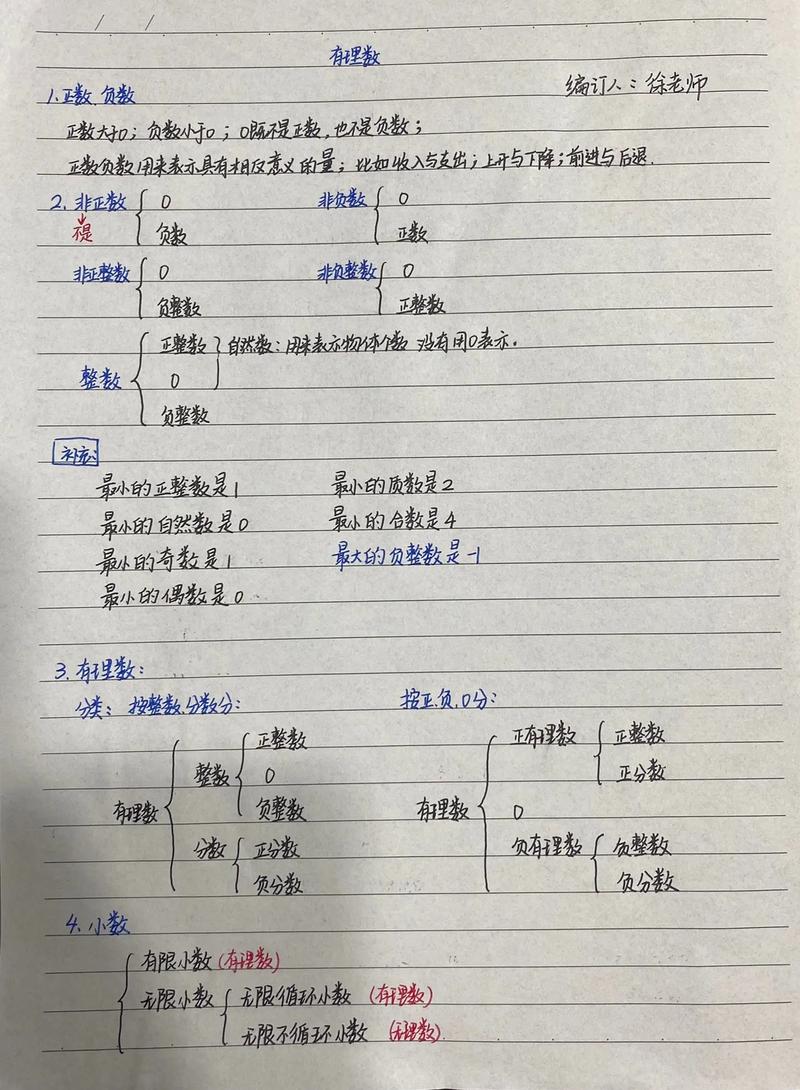 有理数
编订人：徐老师
1.正数 负数
正数大于0；负数小于0；0既不是正数，也不是负数；
正数负数用来表示具有相反意义的量；比如收入与支出；上升与下降；前进与后退.
2. 非正数 { 0 非负数 { 0
不是 负数 正数
非正整数 { 0 非负整数 { 0
负整数 正整数
正整数 } 自然数：用来表示物体个数 没有用0表示.
整数 { 0
负整数
补充：
最小的正整数是1 最小的质数是2
最小的自然数是0 最小的合数是4
最小的奇数是1 最大的负整数是-1
最小的偶数是0
3.有理数：
分类：按整数.分数分： 按正.负.0分：
正整数 正有理数 { 正整数
整数 { 0 正分数
负整数
有理数 { 有理数 { 0
分数 { 正分数 负有理数 { 负整数
负分数 负分数
4.小数
有限小数(有理数)
无限小数 { 无限循环小数 (有理数)
无限不循环小数 (无理数)